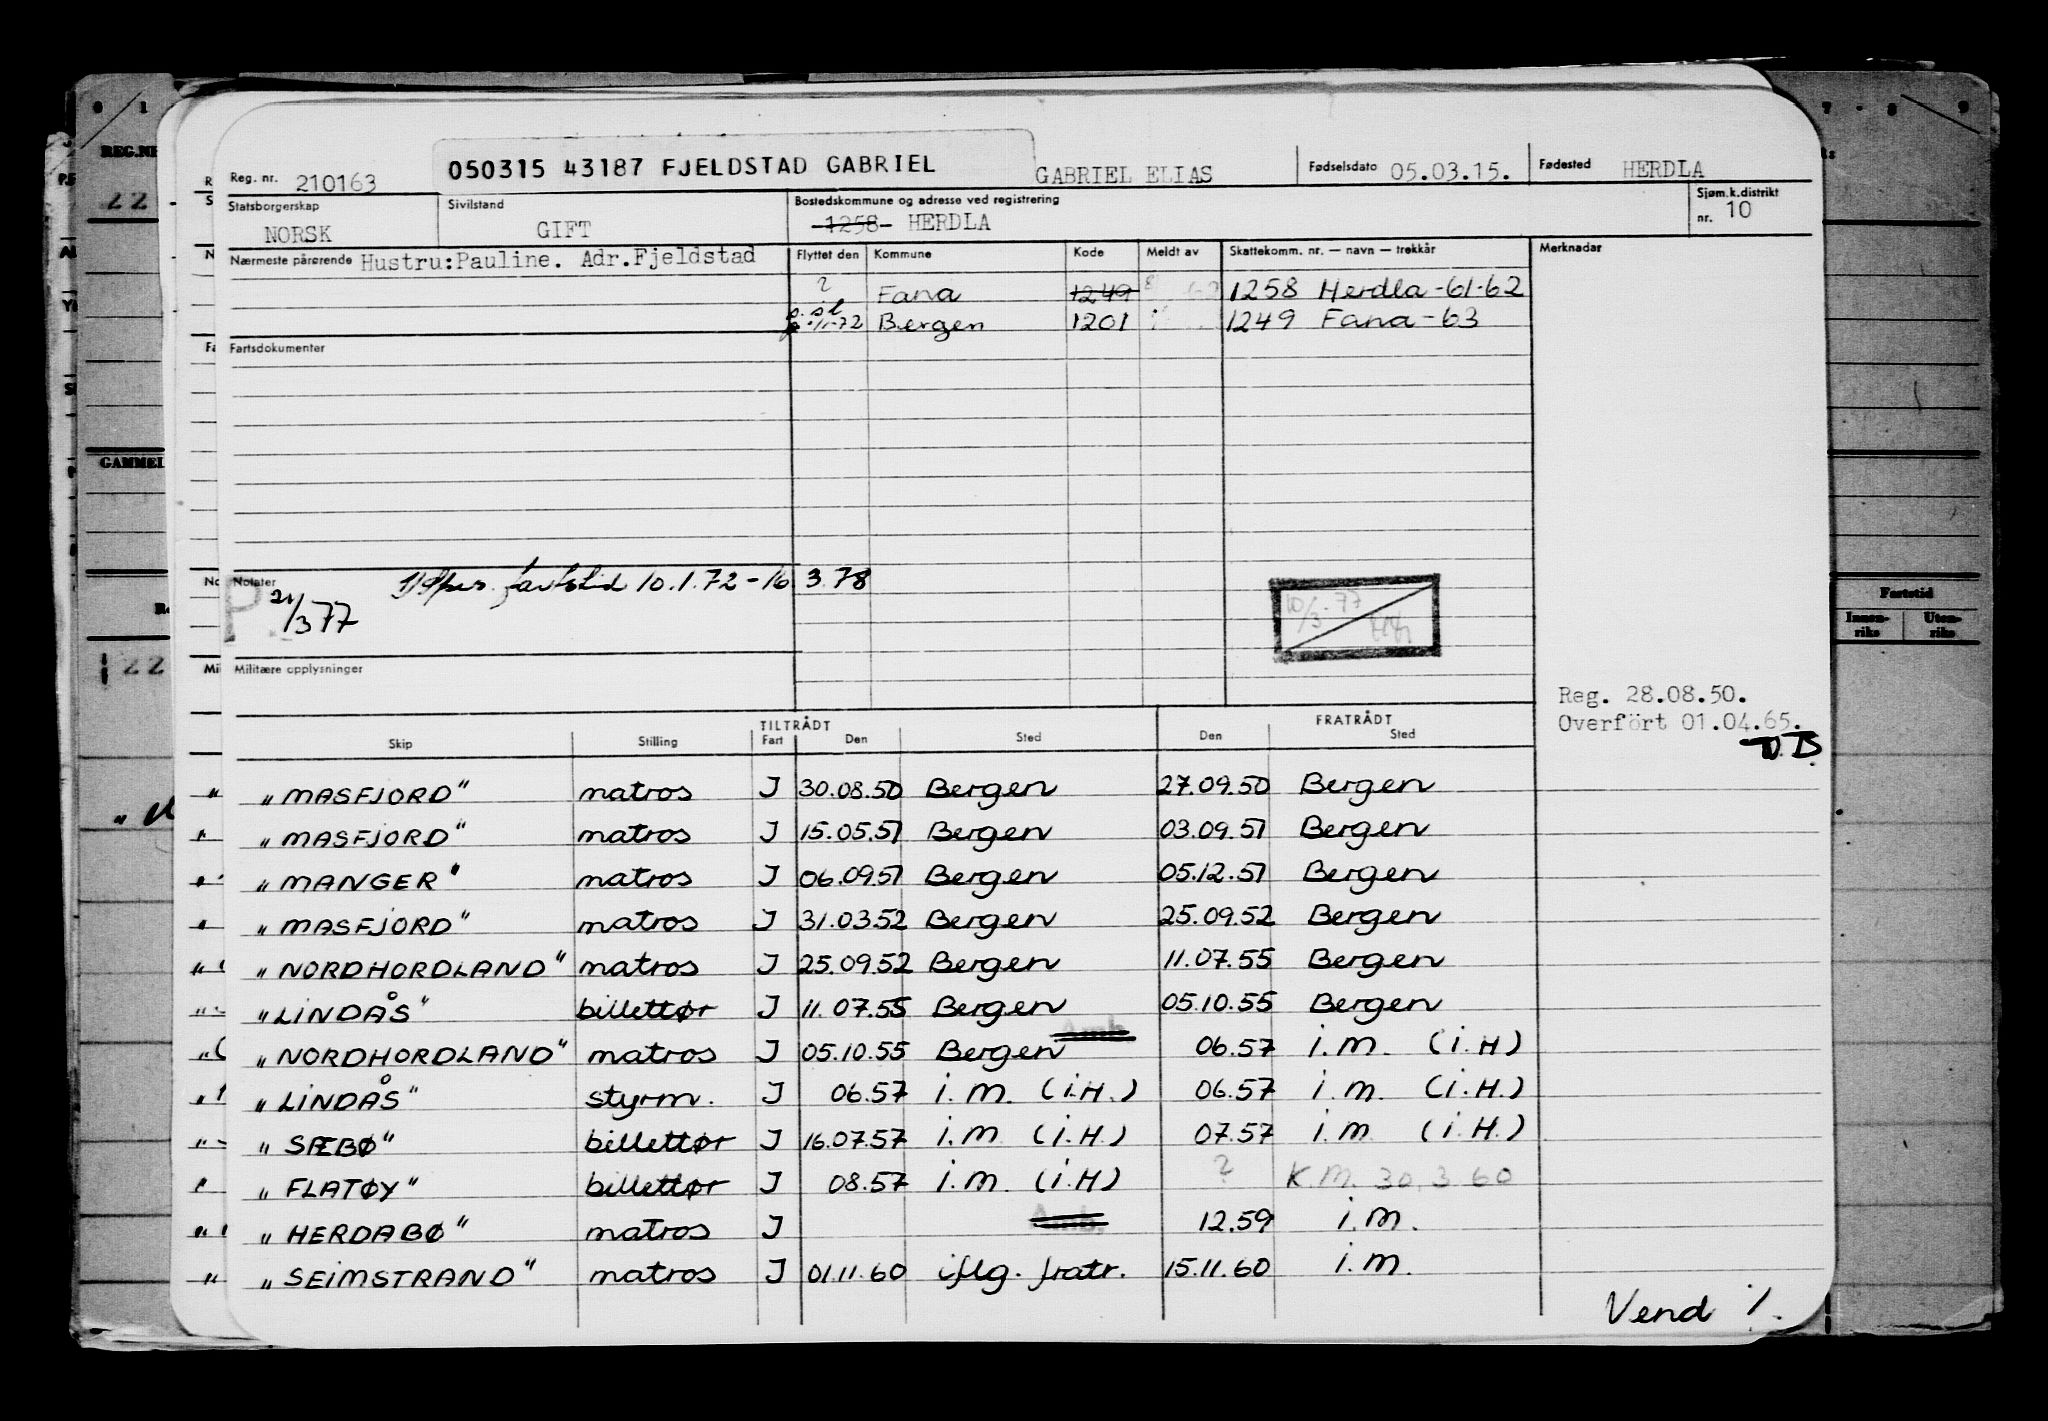 0 1 7 - 8 9
REG.NR
050315 43187 FJELDSTAD GABRIEL
Reg. nr. 210163 GABRIEL ELIAS Fødselsdato 05.03.15. Fødested HERDLA
Statsborgerskap NORSK Sivilstand GIFT Bostedskommune og adresse ved registrering 1258 HERDLA Sjøm.k.distrikt nr. 10
Nærmeste pårørende Hustru:Pauline. Adr.Fjeldstad Flyttet den Kommune Kode Meldt av Skattekomm. nr. — navn — trekkår Merknader
? Fana 1249 1258 Herdla -61-62
1-72 Bergen 1201 1249 Fana -63
Fartsdokumenter
GAMMEL
Notater 1) Spes. fartstid 10.1.72 - 16.3.78
P 21/3 77
10/3-77
Militære opplysninger
Fartstid
Innen-riks Uten-riks
Reg. 28.08.50.
Overfört 01.04.65.
TILTRÅDT FRATRÅDT
Skip Stilling Fart Den Sted Den Sted
"MASFJORD" matros J 30.08.50 Bergen 27.09.50 Bergen
"MASFJORD" matros J 15.05.51 Bergen 03.09.51 Bergen
"MANGER" matros J 06.09.51 Bergen 05.12.51 Bergen
"MASFJORD" matros J 31.03.52 Bergen 25.09.52 Bergen
"NORDHORDLAND" matros J 25.09.52 Bergen 11.07.55 Bergen
"LINDÅS" billettør J 11.07.55 Bergen 05.10.55 Bergen
"NORDHORDLAND" matros J 05.10.55 Bergen Amb. 06.57 i.m. (i.H)
"LINDÅS" styrm. J 06.57 i.m. (i.H.) 06.57 i.m. (i.H.)
"SÆBØ" billettør J 16.07.57 i.m. (i.H.) 07.57 i.m. (i.H.)
"FLATØY" billettør J 08.57 i.m. (i.H) ? K.M. 30.3.60
"HERDABØ" matros J Amb. 12.59 i.m.
"SEIMSTRAND" matros J 01.11.60 iflg. fratr. 15.11.60 i.m.
Vend ./.